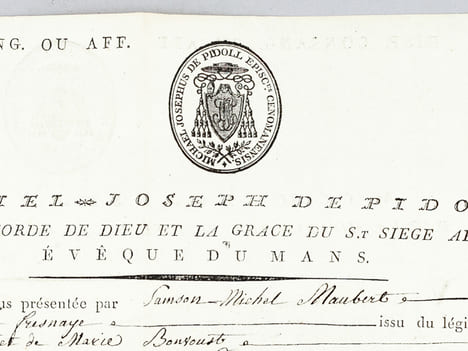 NG. OU AFF.
MICHAEL JOSEPHUS DE PIDOLL EPISC.US CENOMANENSIS
EL JOSEPH DE PIDO
ORDE DE DIEU ET LA GRACE DU S.T SIEGE A
ÉVÊQUE DU MANS.
us présentée par Samson Michel Maubert
fresnaye issu du légi
et de Marie Bonvoust